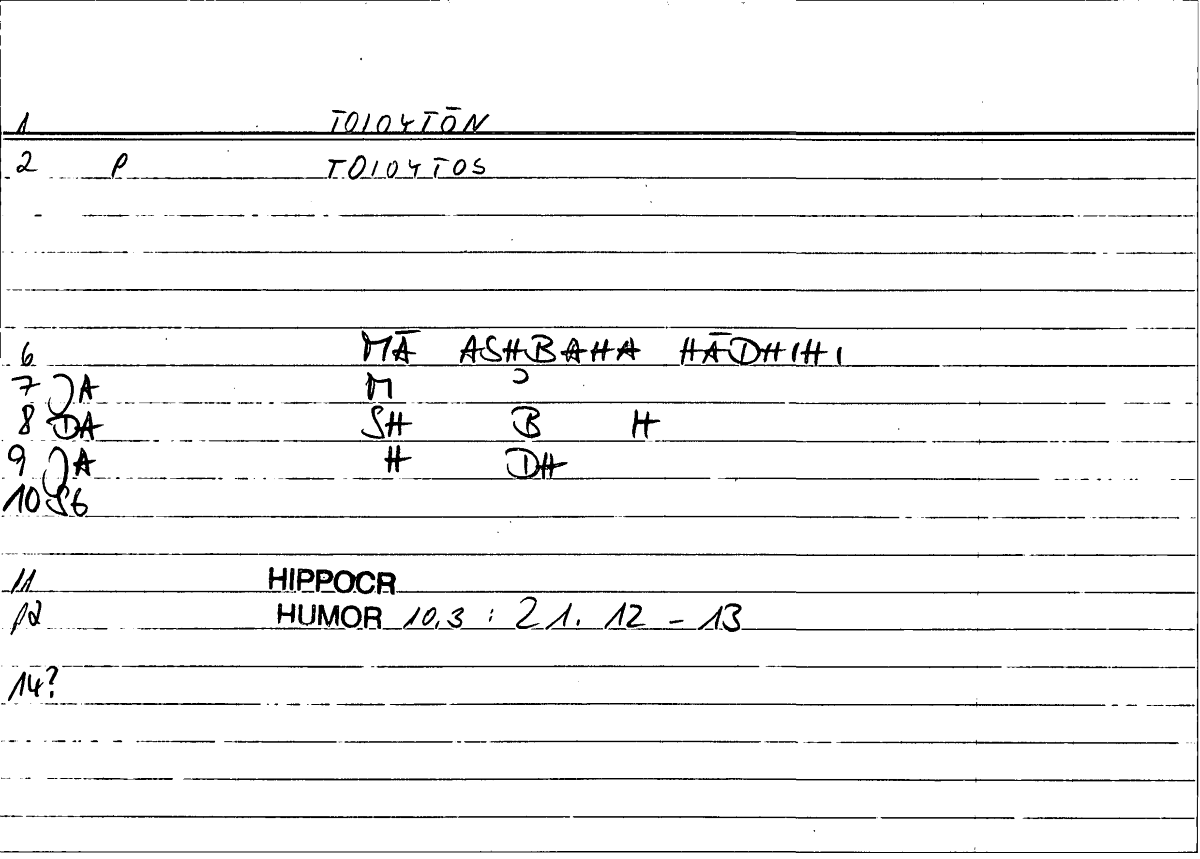 1 TOIOYTŌN
2 P TOIOYTOS
6 MĀ ASHBAHA HĀDHIHI
7 JA M ɔ
8 DA SH B H
9 JA H DH
10 S6
11 HIPPOCR
12 HUMOR 10.3 : 21. 12 - 13
14?